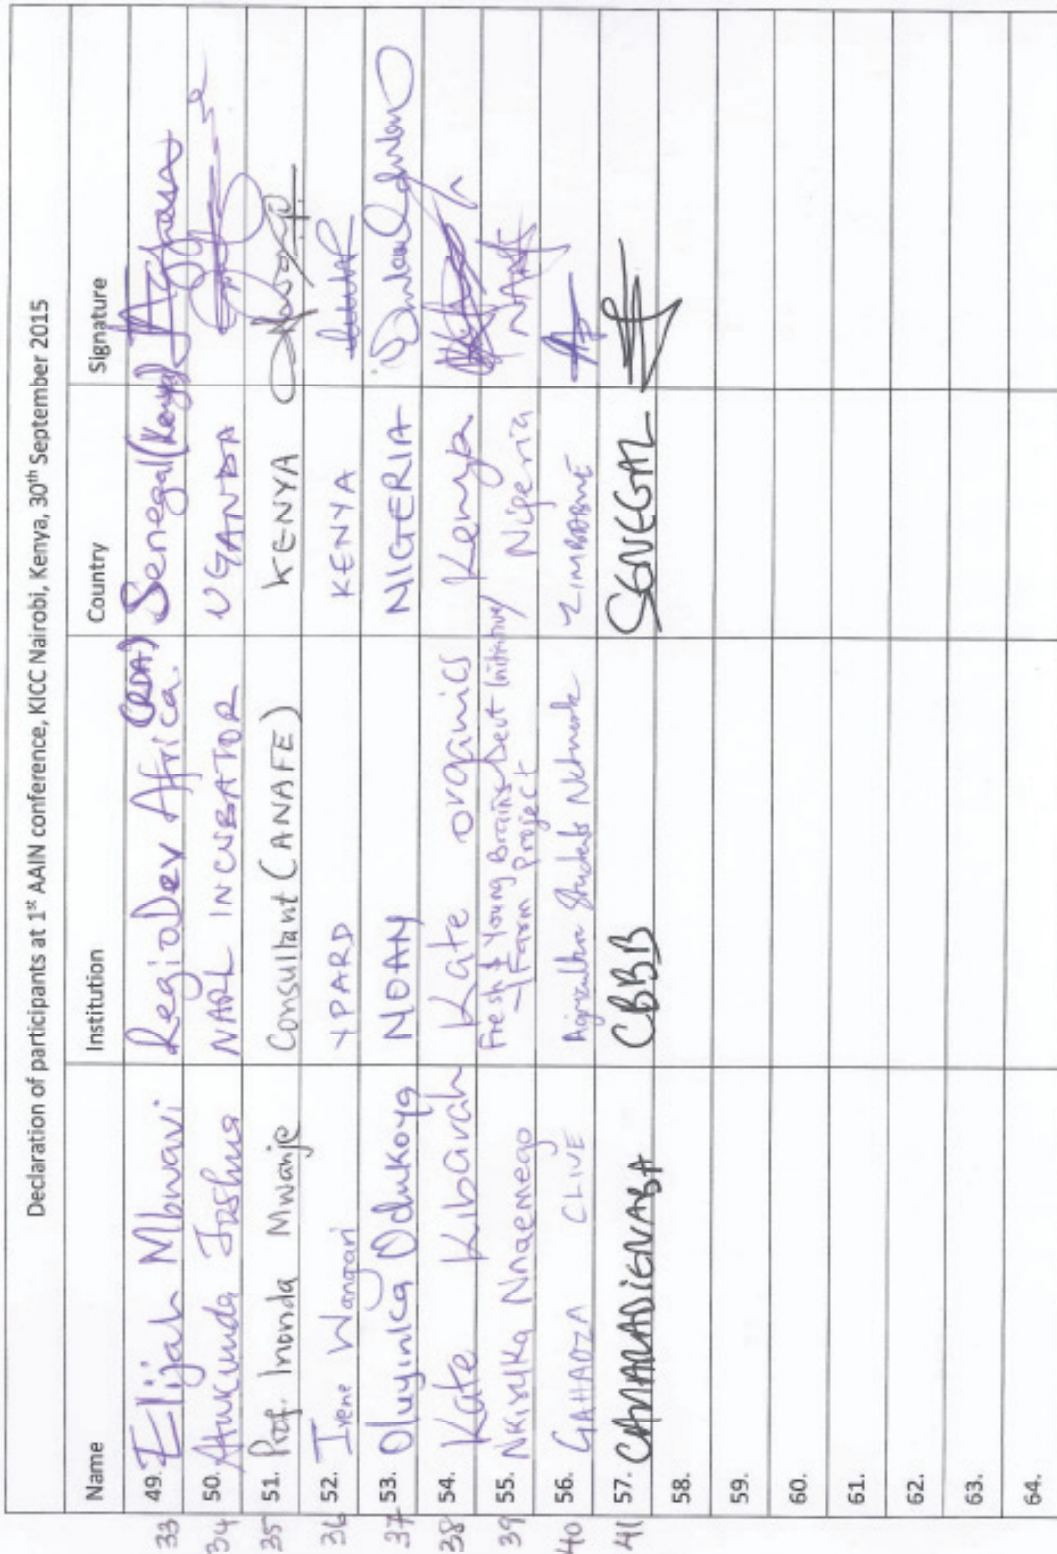 Declaration of participants at 1st AAIN conference, KICC Nairobi, Kenya, 30th September 2015
Name Institution Country Signature
33 49. Elijah Mbwavi RegioDev Africa. (RDA) Senegal (Kenya)
34 50. Atukunda Joshua NARL INCUBATOR UGANDA
35 51. Prof. Inonda Mwanje Consultant (ANAFE) KENYA
36 52. Irene Wangari YPARD KENYA
37 53. Oluyinka Odukoya NOAN NIGERIA
38 54. Kate Kibarah Kate organics Kenya
39 55. Nkiruka Nnaemego Fresh & Young Brains Devt Initiative/
-Farm Project Nigeria
40 56. GAHADZA CLIVE Agriculture Students Network ZIMBABWE
41 57. CAMARADIENABA CBBB SENEGAL
58.
59.
60.
61.
62.
63.
64.